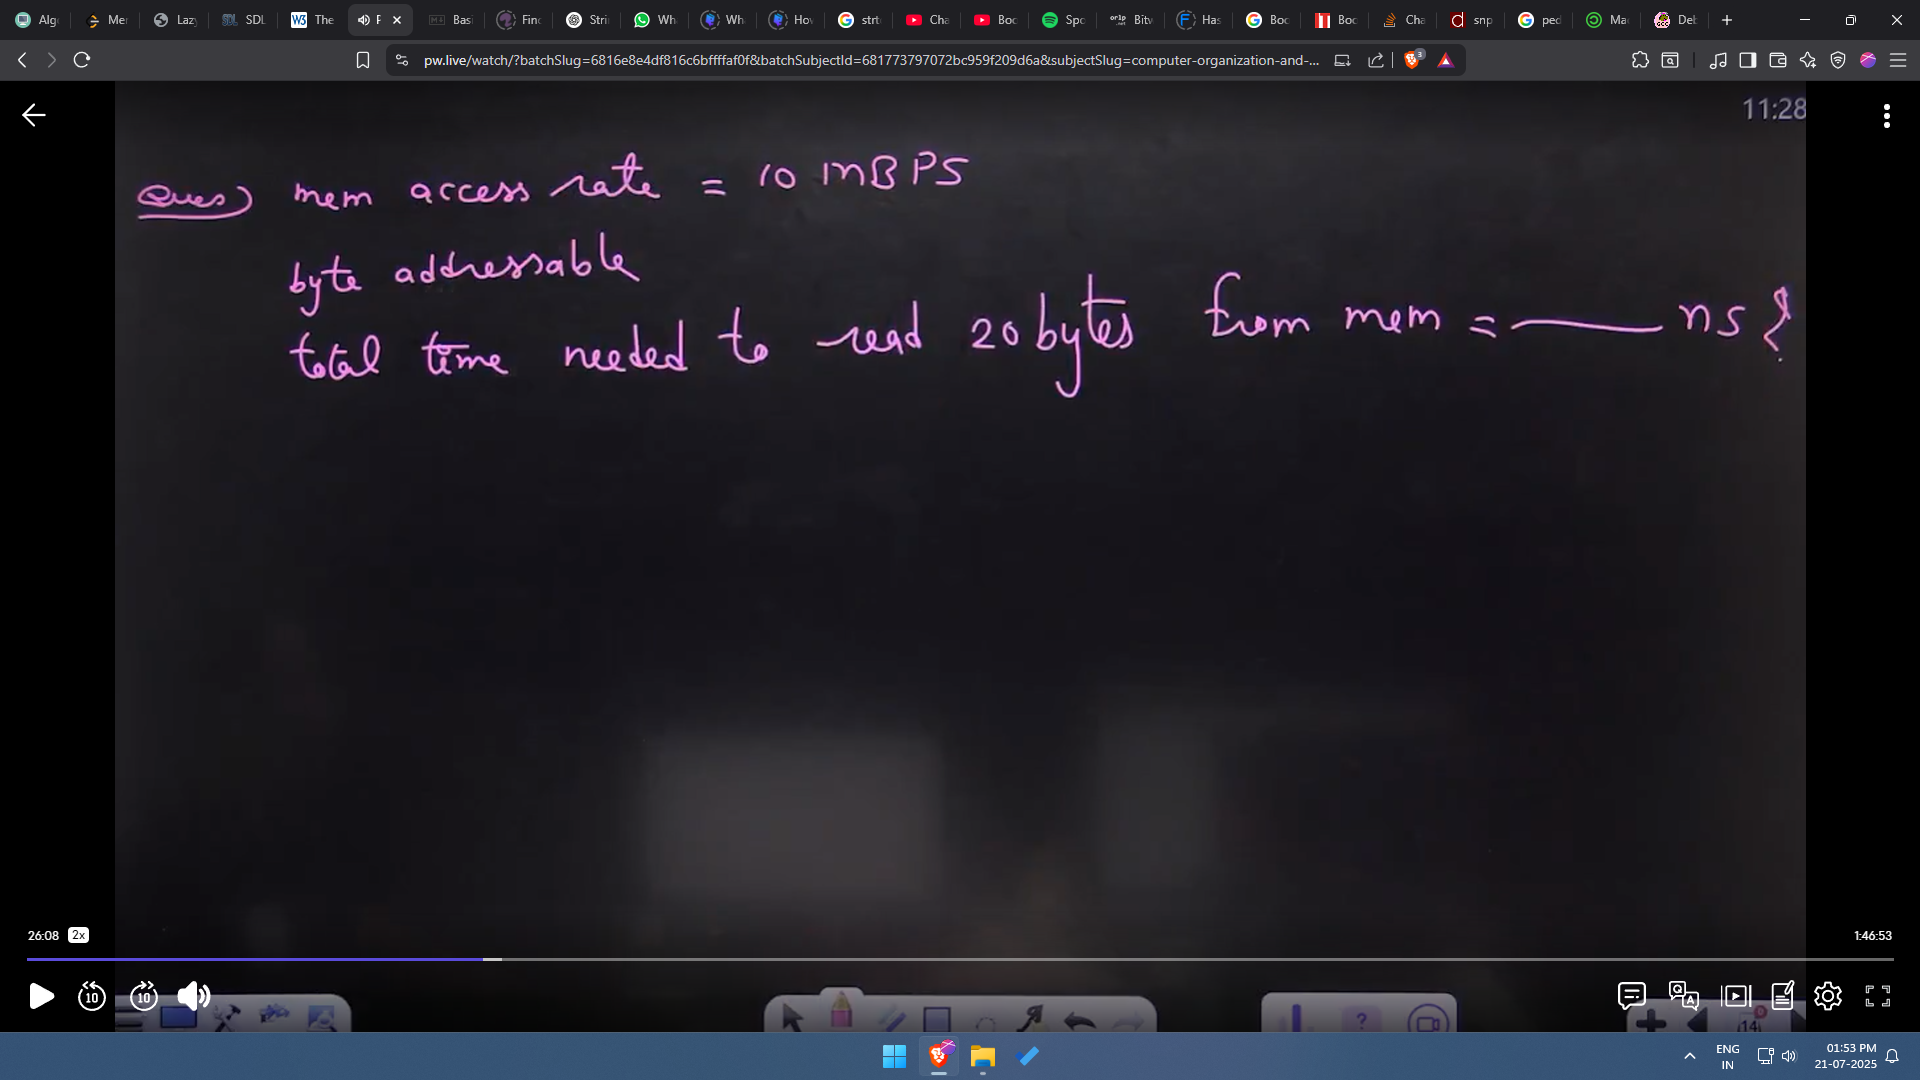 Alg
Mer
Lazy
SDL
The
P
Basi
Finc
Stri
Wha
Wh
Hov
strt
Cha
Boc
Spo
Bitv
Has
Boc
Boc
Cha
snp
ped
Ma
Deb
pw.live/watch/?batchSlug=6816e8e4df816c6bffffaf0f&batchSubjectId=681773797072bc959f209d6a&subjectSlug=computer-organization-and-...
3
11:28
Ques) mem access rate = 10 MBPS
byte addressable
total time needed to read 20 bytes from mem = ____ ns ?
26:08 2x
1:46:53
10
10
14
ENG
IN
01:53 PM
21-07-2025